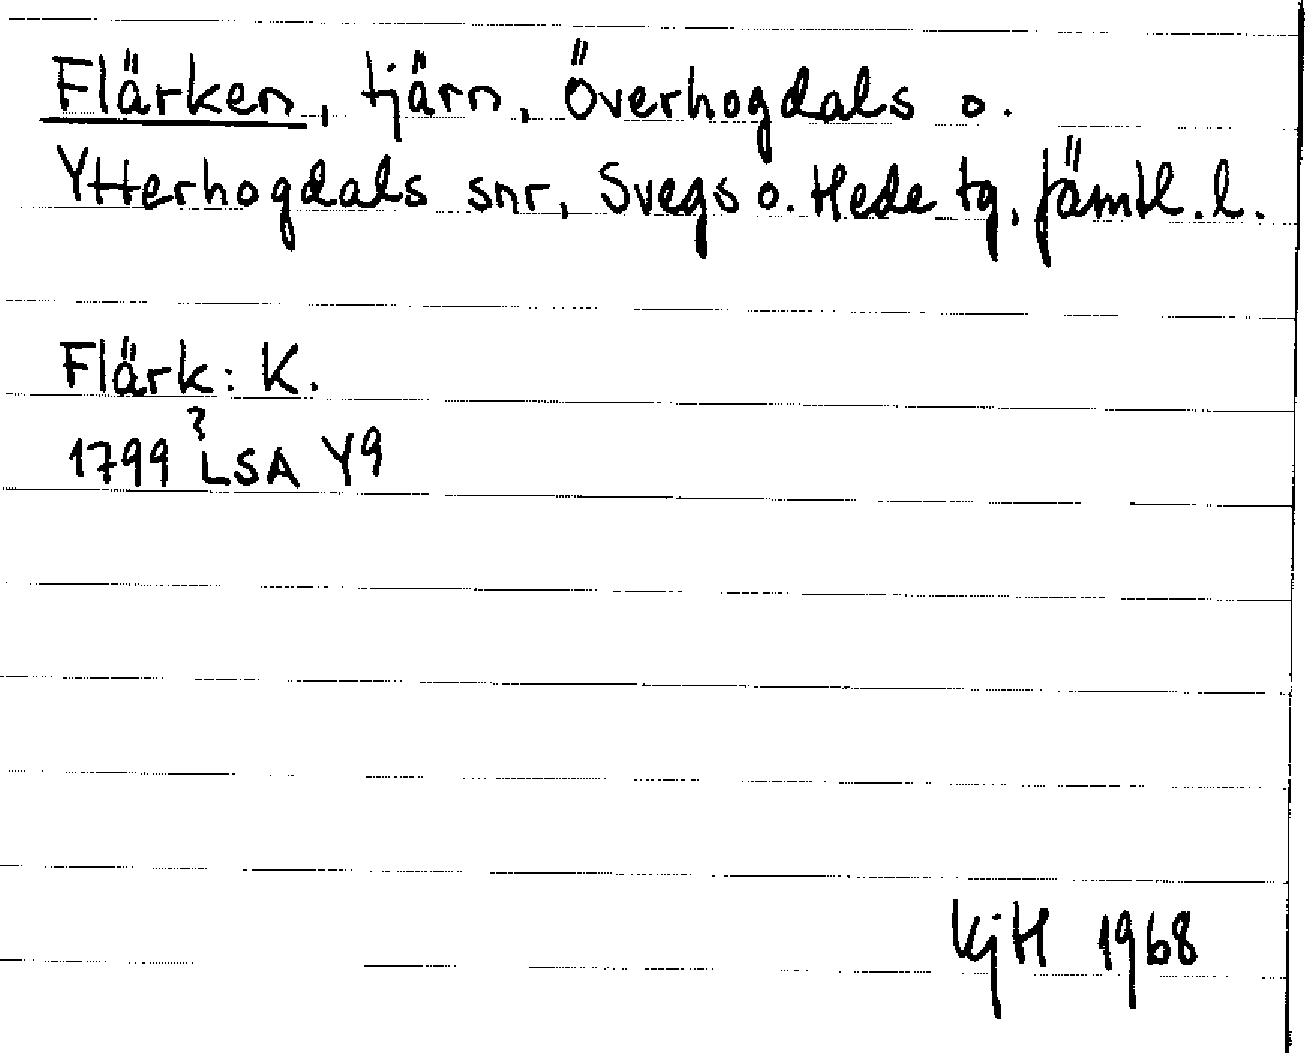 Flärken, tjärn, Överhogdals o.
Ytterhogdals snr, Svegs o. Hede tg, Jämtl. l.
Flärk: K.
?
1799 LSA Y9
KjH 1968